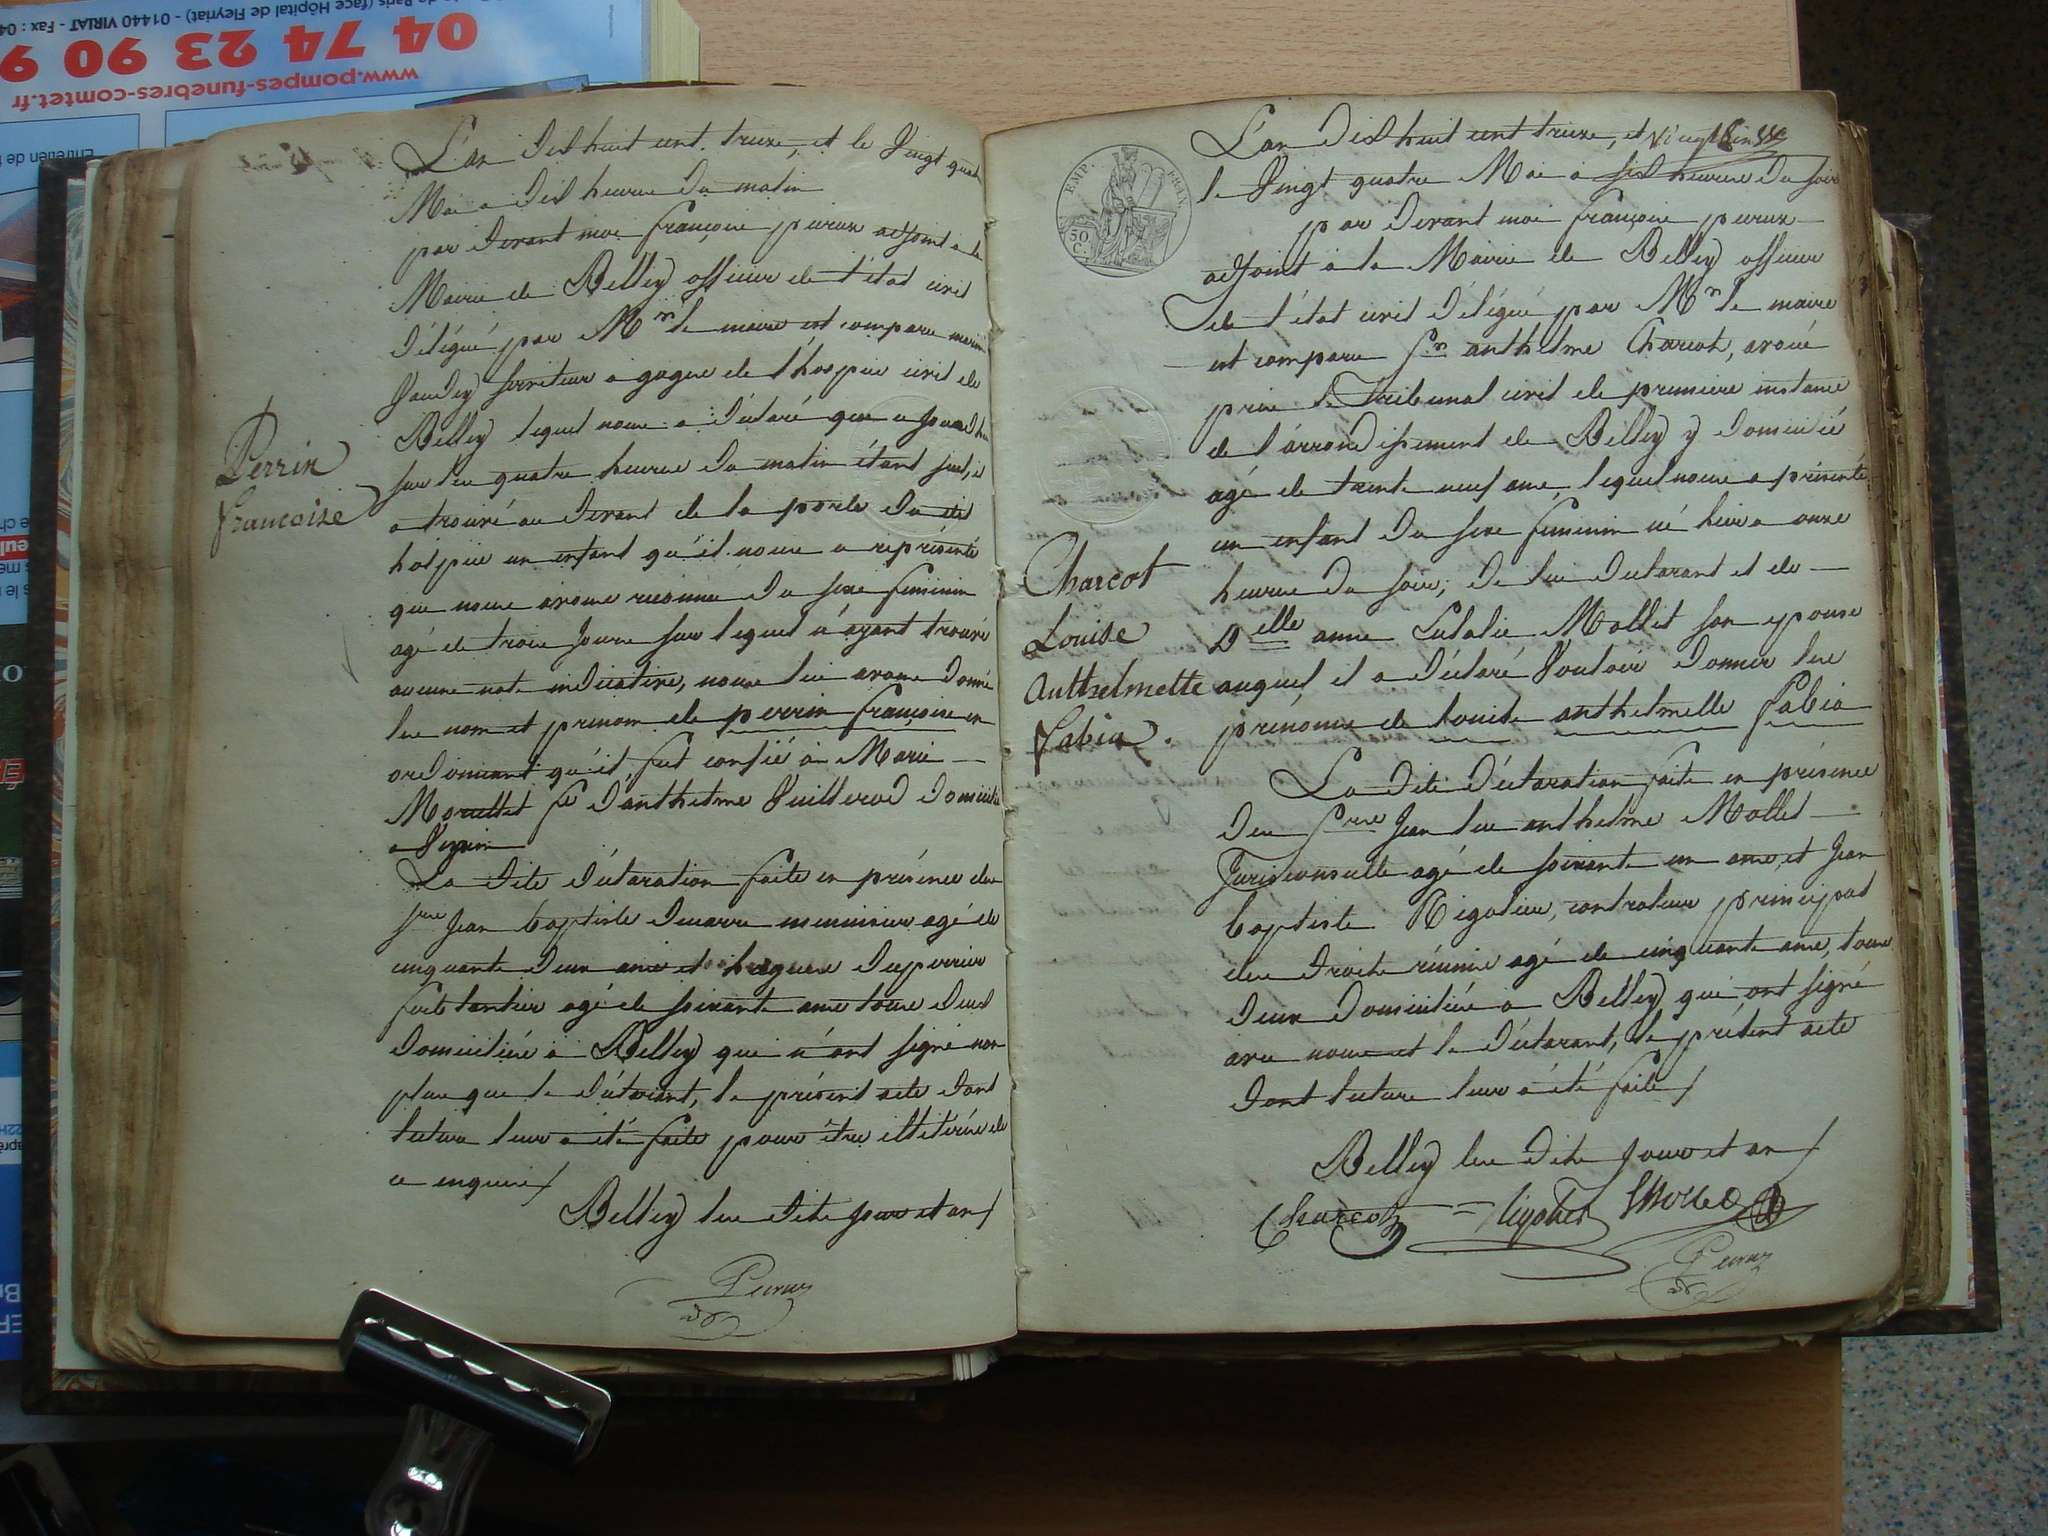 04 74 23 90 9
www.pompes-funebres-comtet.fr
de Paris (face Hôpital de Fleyriat) - 01440 VIRIAT - Fax : 04
Entretien de
L'an dix huit cent treize, et le Vingt quatre
Mai a dix heures du matin
par devant moi françois peirux adjoint a la
Mairie de Belley officier de l'état civil
délégué par Mr le maire est comparu
serviteur a gages de l'hospice civil de
Belley lequel nous a déclaré que
sur les quatre heures du matin étant
a trouvé au devant de la porte du dit
hospice un enfant qu'il nous a représenté
que nous avons reconnu du sexe feminin
agé de trois jours sur lequel n'ayant trouvé
aucune note indicative, nous lui avons donné
les nom et prenom de perrin françoise en
ordonnant qu'il fut confié à Marie
Morellet fe d'anthelme Vuillerod domicilié
a
La dite déclaration faite en présence des
srs Jean baptiste menuisier agé de
cinquante deux ans et hugues duperrier
agé de soixante ans tous deux
domiciliés à Belley qui n'ont signé non
plus que le déclarant, le présent acte dont
lecture leur a été faite pour être illitérés de
ce enquis
Belley les dits jour et an
Peirux
Perrin
Francoise
EMP. FRAN.
50 C.
L'an dix huit cent treize, et
le Vingt quatre Mai a six heures du soir
par devant moi françois peirux
adjoint a la Mairie de Belley officier
de l'état civil délégué par Mr le maire
est comparu Sr anthelme Charcot, avoué
près le Tribunal civil de premiere instance
de l'arrondissement de Belley y domicilié
agé de trente neuf ans, lequel nous a présenté
un enfant du sexe feminin né hier a onze
heures du soir, de lui déclarant et de
Delle anne Eulalie Mollet son epouse
auquel il a déclaré Vouloir donner les
prénoms de Louise anthelmette Fabia
La dite déclaration faite en présence
des Srs Jean anthelme Mollet
Jurisconsulte agé de soixante un ans, et Jean
baptiste Rigolier, controleur principal
des droits réunis agé de cinquante ans, tous
deux domiciliés a Belley qui ont signé
avec nous et le déclarant, le présent acte
dont lecture leur a été faite
Belley les dits jour et an
Charcot Mollet
Peirux
Charcot
Louise
Anthelmette
Fabia.